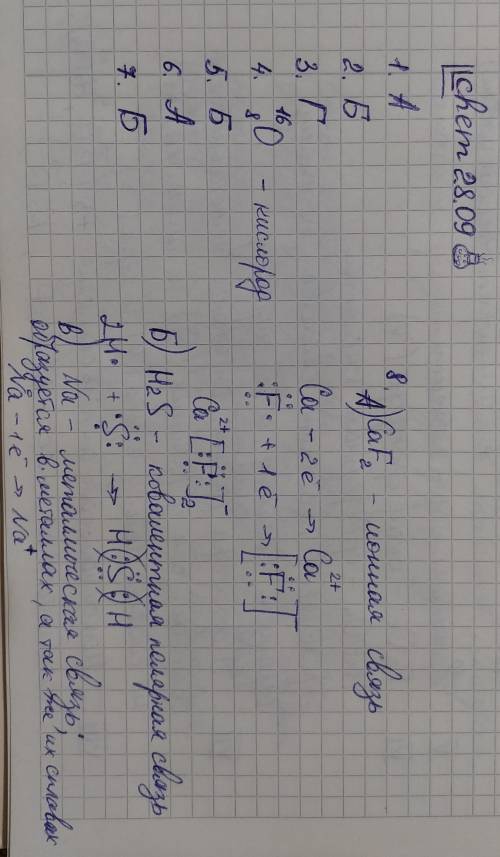 chem 28.09
1. А
2. Б
3. Г
4. ¹⁶₈O - кислород
5. Б
6. А
7. Б
8. А) CaF₂ - ионная связь
Ca - 2e⁻ → Ca²⁺
·F· + 1e⁻ → [:F:]⁻
Ca²⁺[:F:]⁻₂
Б) H₂S - ковалентная полярная связь
2H· + ·S· → H(:S:)H
в) Na - металлическая связь:
образуется в металлах, а так же, их сплавах
Na⁰ - 1e⁻ → Na⁺